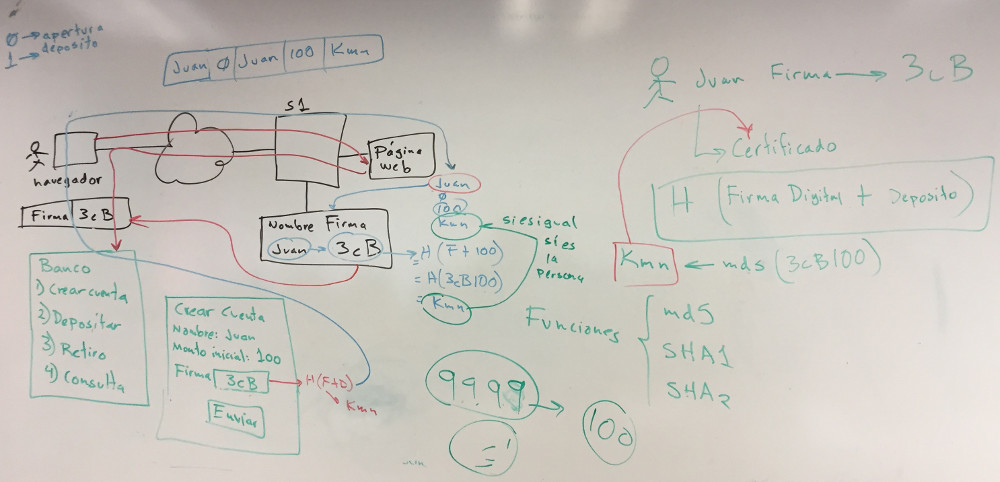 Ø → apertura
1 → deposito
Juan Ø Juan 100 Kmn
S1
Página
web
navegador
Firma 3cB
Nombre Firma
Juan → 3cB
Juan
Ø
100
Kmn
→ H (F + 100)
= H(3cB100)
= Kmn
si es igual
si es
la
Persona
Banco
1) Crear cuenta
2) Depositar
3) Retiro
4) Consulta
Crear Cuenta
Nombre: Juan
Monto inicial: 100
Firma 3cB → H(F+D)
Kmn
Enviar
Juan Firma → 3cB
Certificado
H (Firma Digital + Deposito)
Kmn ← md5 (3cB100)
Funciones
md5
SHA1
SHA2
99.99 → 100